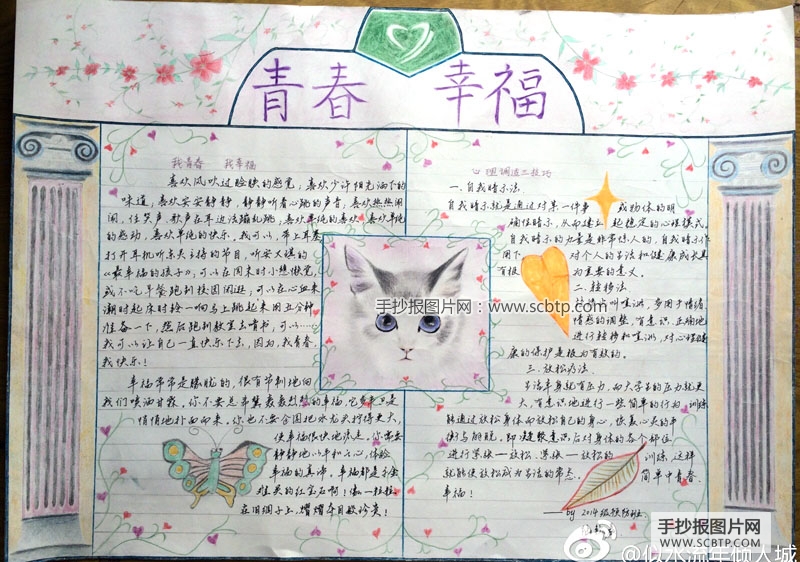 青春 幸福
我青春 我幸福
喜欢风吹过脸颊的感觉,喜欢少许阳光洒下的
味道,喜欢安安静静,静静听着心跳的声音,喜欢热热闹
闹,任笑声,歌声在耳边活蹦乱跳,喜欢单纯的喜欢,喜欢单纯
的感动,喜欢单纯的快乐。我可以,带上耳麦
打开耳机听东夫主持的节目,听安又琪的
《最幸福的孩子》,可以在周末时小憩懒觉,
或不吃早餐跑到校园闲逛,可以在心血来
潮时起床时铃一响马上跳起来用五分钟
准备一下,然后跑到教室去嗜书,可以……
我可以让自己一直快乐下去,因为,我青春,
我快乐!
幸福常常是朦胧的,很有节制地向
我们喷洒甘霖。你不要总希冀轰轰烈烈的幸福,它多半只是
悄悄地扑面而来。你也不要企图把水龙头拧得更大,
使幸福很快地流走。你需要
静静地以平和之心,体验
幸福的真谛。幸福都是不会
在旧绸子上,熠熠夺目般珍贵!
心理调适三技巧
一.自我暗示法
自我暗示就是通过对某一件事 或物体的明
确性暗示,从而建立 起稳定的心理模式。
自我暗示的力量是非常惊人的,自我暗示作
用下 对个人的生活和健康成长具
有极 为重要的意义。
二.转移法
情感的调整,有意识、正确地
进行转移和喧泄,对心理健
康的保护是极为有效的。
三.放松疗法
生活本身就有压力,而大学生的压力就更
大,有意识地进行一些简单的行为,训练
能通过放松身体而放松自己的身心,恢复心灵的平
衡与朝脱。即凝聚意识后对身体的各个部位
进行紧张—放松、紧张—放松的 训练,这样
就能使放松成为生活的常态。 简单中青春.
幸福!
——by 2014级预防班
手抄报图片网:www.scbtp.com
手抄报图片网
WWW.SCBTP.COM
@似水流年倾人城